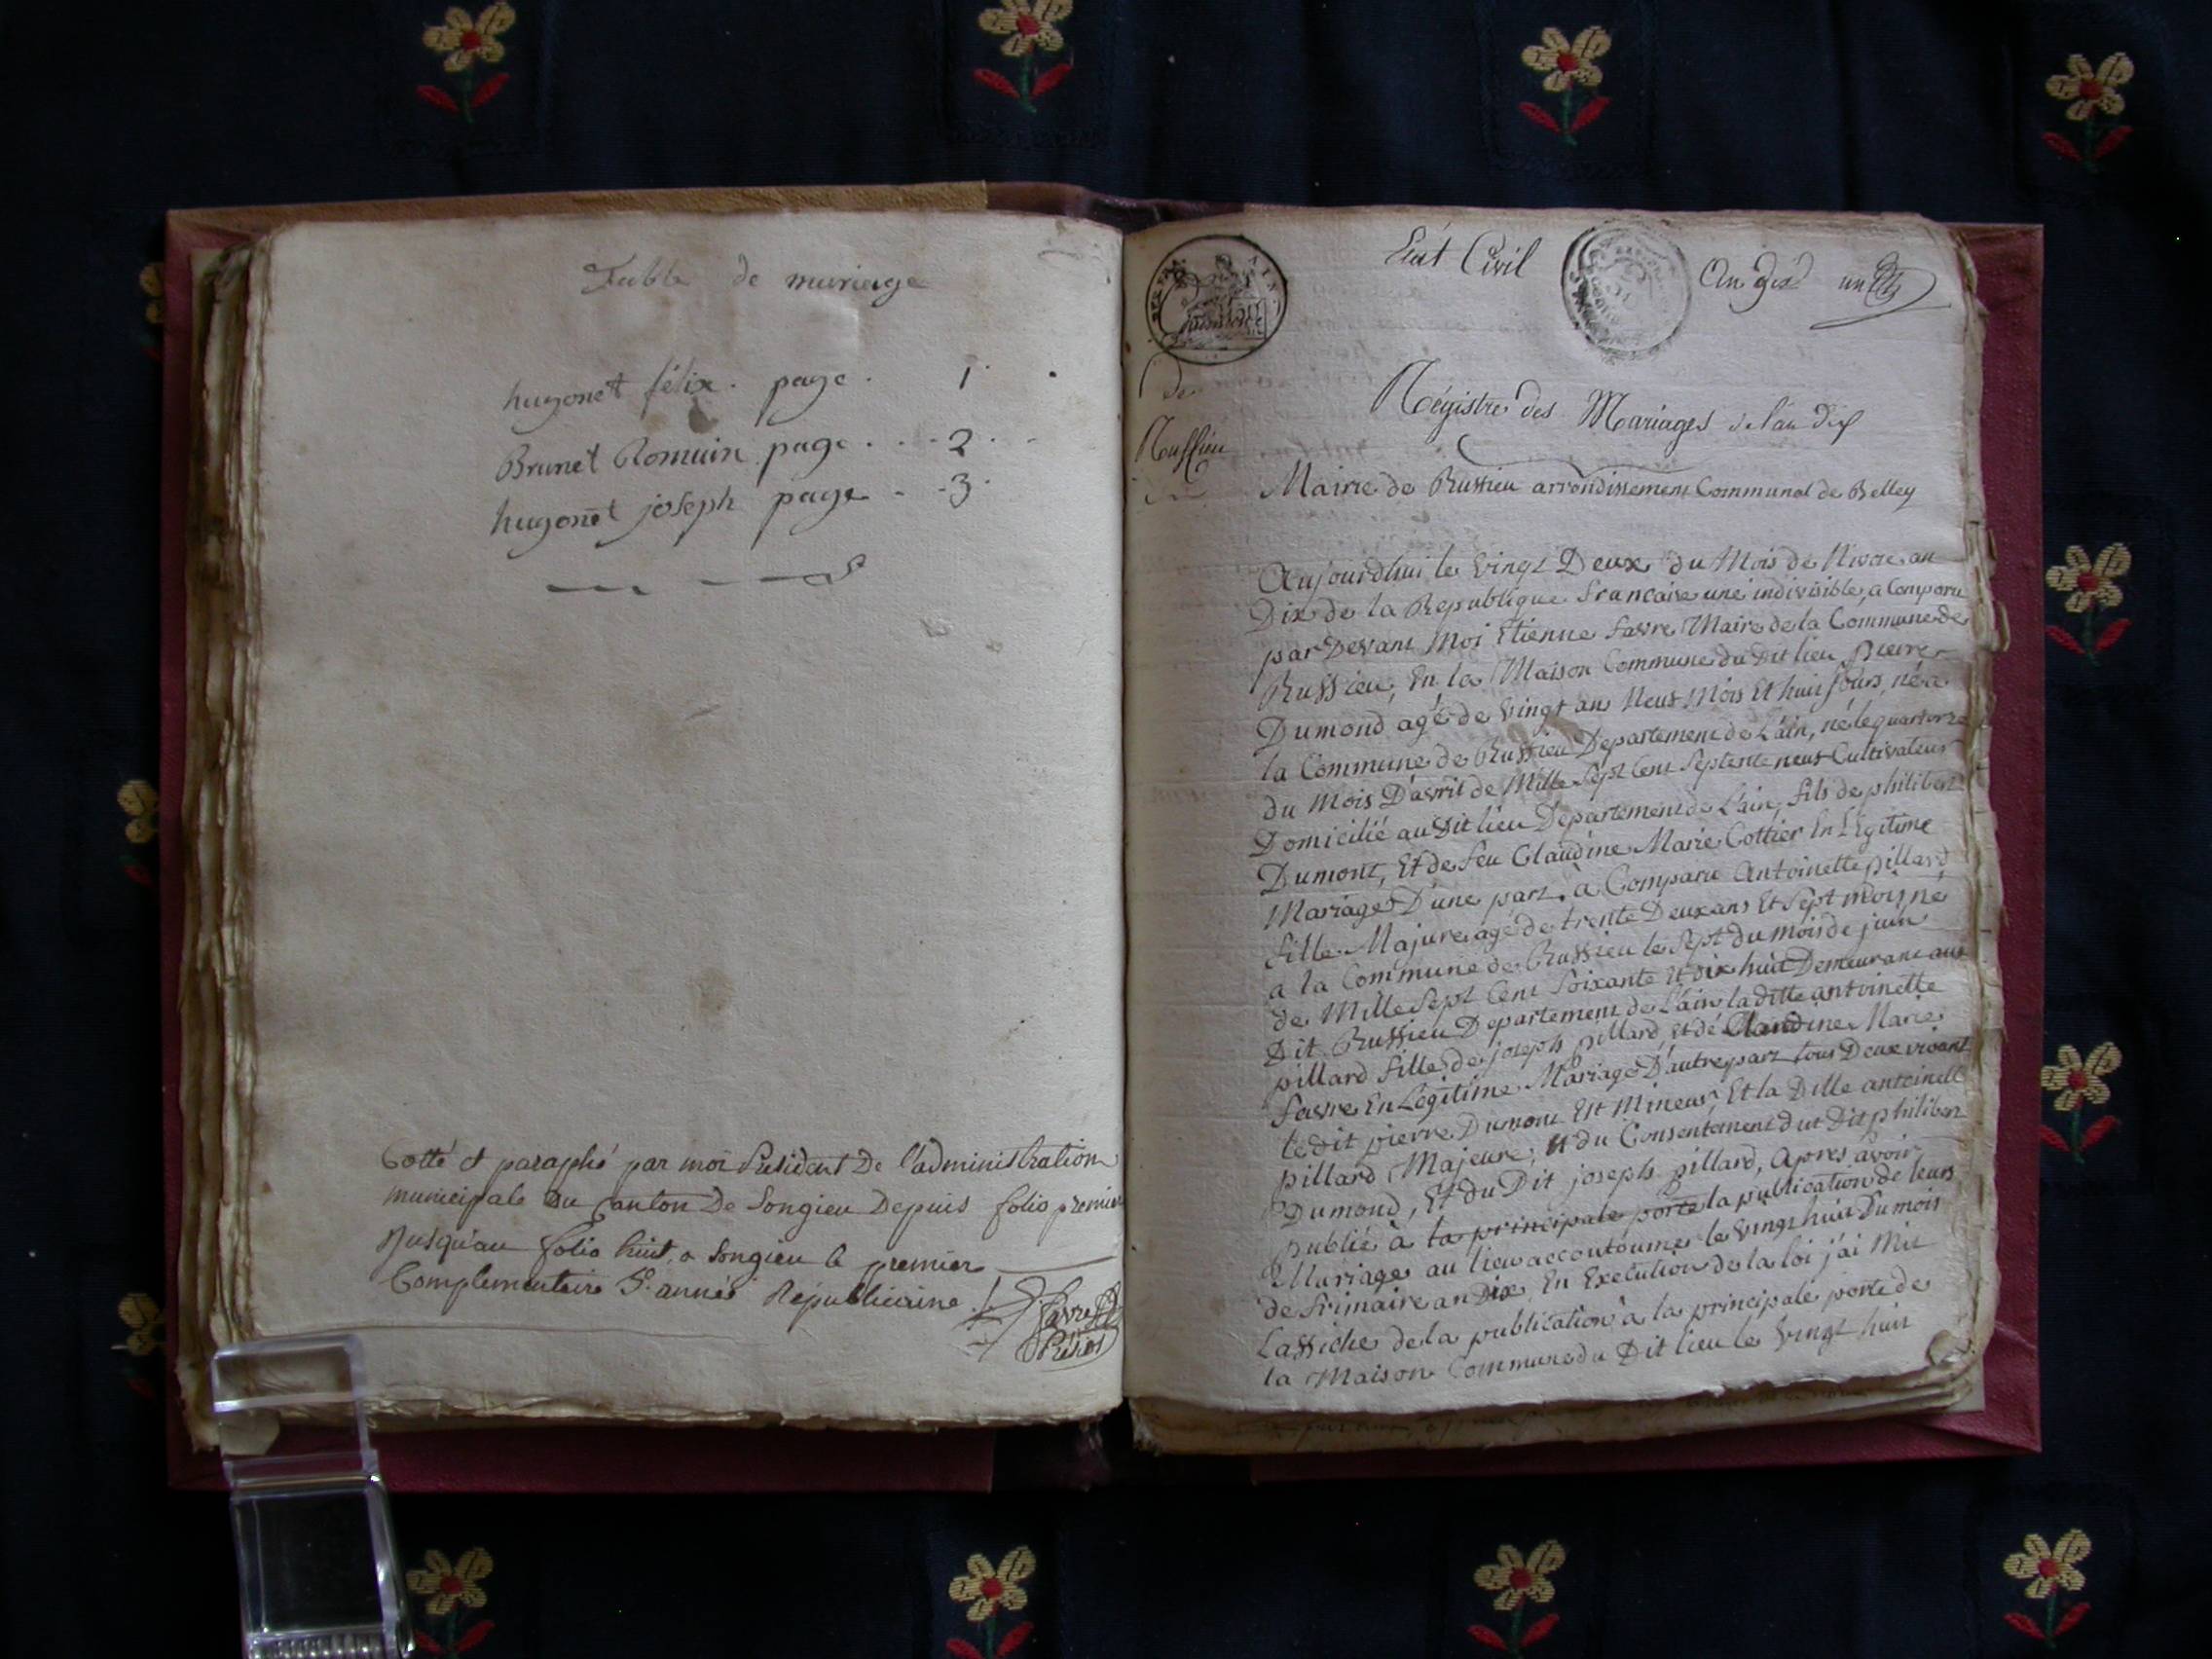 Table de mariage
hugonet félix. page. 1.
Brunet Romain page. . . 2.
hugonet joseph page. . 3.
Cotté et paraphé par moi Président De l'administration
municipale Du Canton De Songieu Depuis folio premier
Jusqu'au folio huit, a Songieu le premier
Complementaire 5e. année Républicaine
favre
Etat Civil
An dix
un
de
Ruffieu
Régistre des Mariages de l'an dix
Mairie de Russieu arrondissement Communal de Belley
Aujourdhui le vingt Deux du Mois de Nivose an
Dix de la Republique francaise une indivisible, a Comparu
par Devant Moi Etienne favre Maire de la Commune de
Russieu, En la Maison Commune du Dit lieu pierre
Dumond agé de vingt an Neuf Mois Et huit jours, né a
la Commune de Russieu Departement de L'ain, né le quatorze
du Mois D'avril de Mille Sept Cent Septente neuf Cultivateur
Domicilié au Dit lieu Departement de L'ain, fils de philibert
Dumont, Et de feu Claudine Marie Cottier En Legitime
Mariage D'une part, à Comparu Antoinette pillard
fille Majure agé de trente Deux ans Et Sept mois, né
a la Commune de Russieu le Sept du mois de juin
de Mille Sept Cent Soixante Et dix huit Demeurant au
Dit Russieu Departement de L'ain la ditte antoinette
pillard fille de joseph pillard, et dé Claudine Marie
favre En Légitime Mariage D'autre part tous Deux vivant
le dit pierre Dumont Est Mineur Et la Ditte antoinett
pillard Majeure, Et du Consentement dut Dit philibert
Dumond, Et du Dit joseph pillard, Apres avoir
publié à la principale porte la publication de leurs
Mariage au lieu accoutoume le vingt huit Du mois
de frimaire an Dix, En Execution de la loi j'ai Mit
Laffiche de la publication à la principale porte de
la Maison Commune du Dit lieu le vingt huit